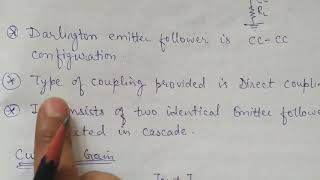 RL
Darlington emitter follower is CC-CC
configuration
Type of coupling provided is Direct coupli
consists of two identical Emitter follow
cted in cascade.
Cu Gain